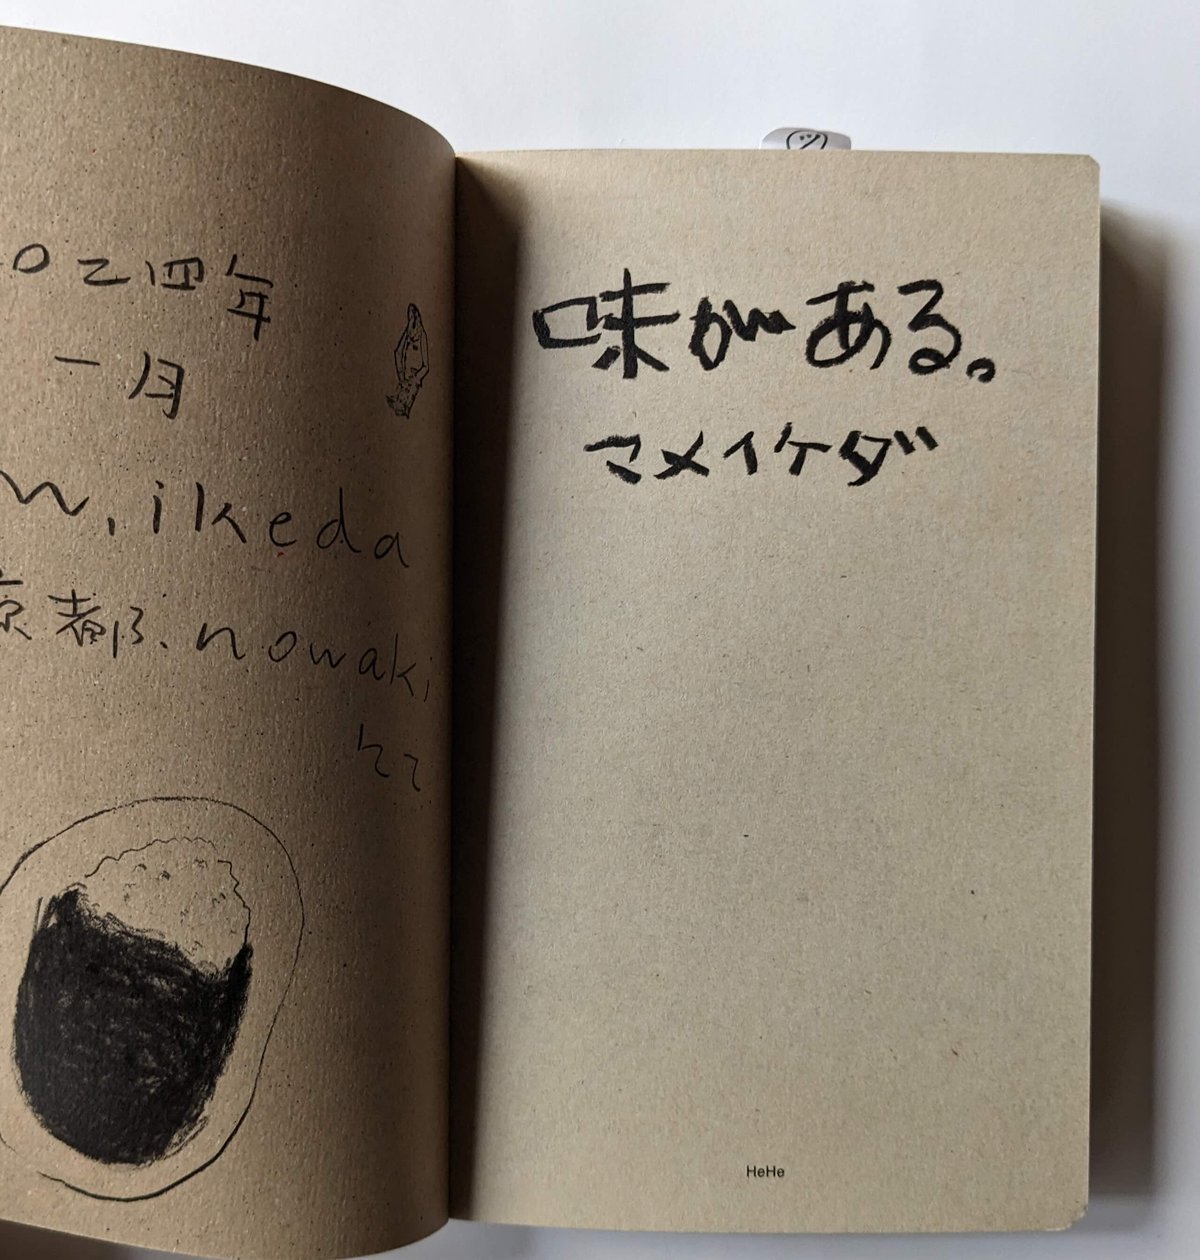 〇二四年
一月
m, ikeda
京都、nowaki
にて
味がある。
マメイケダ
HeHe